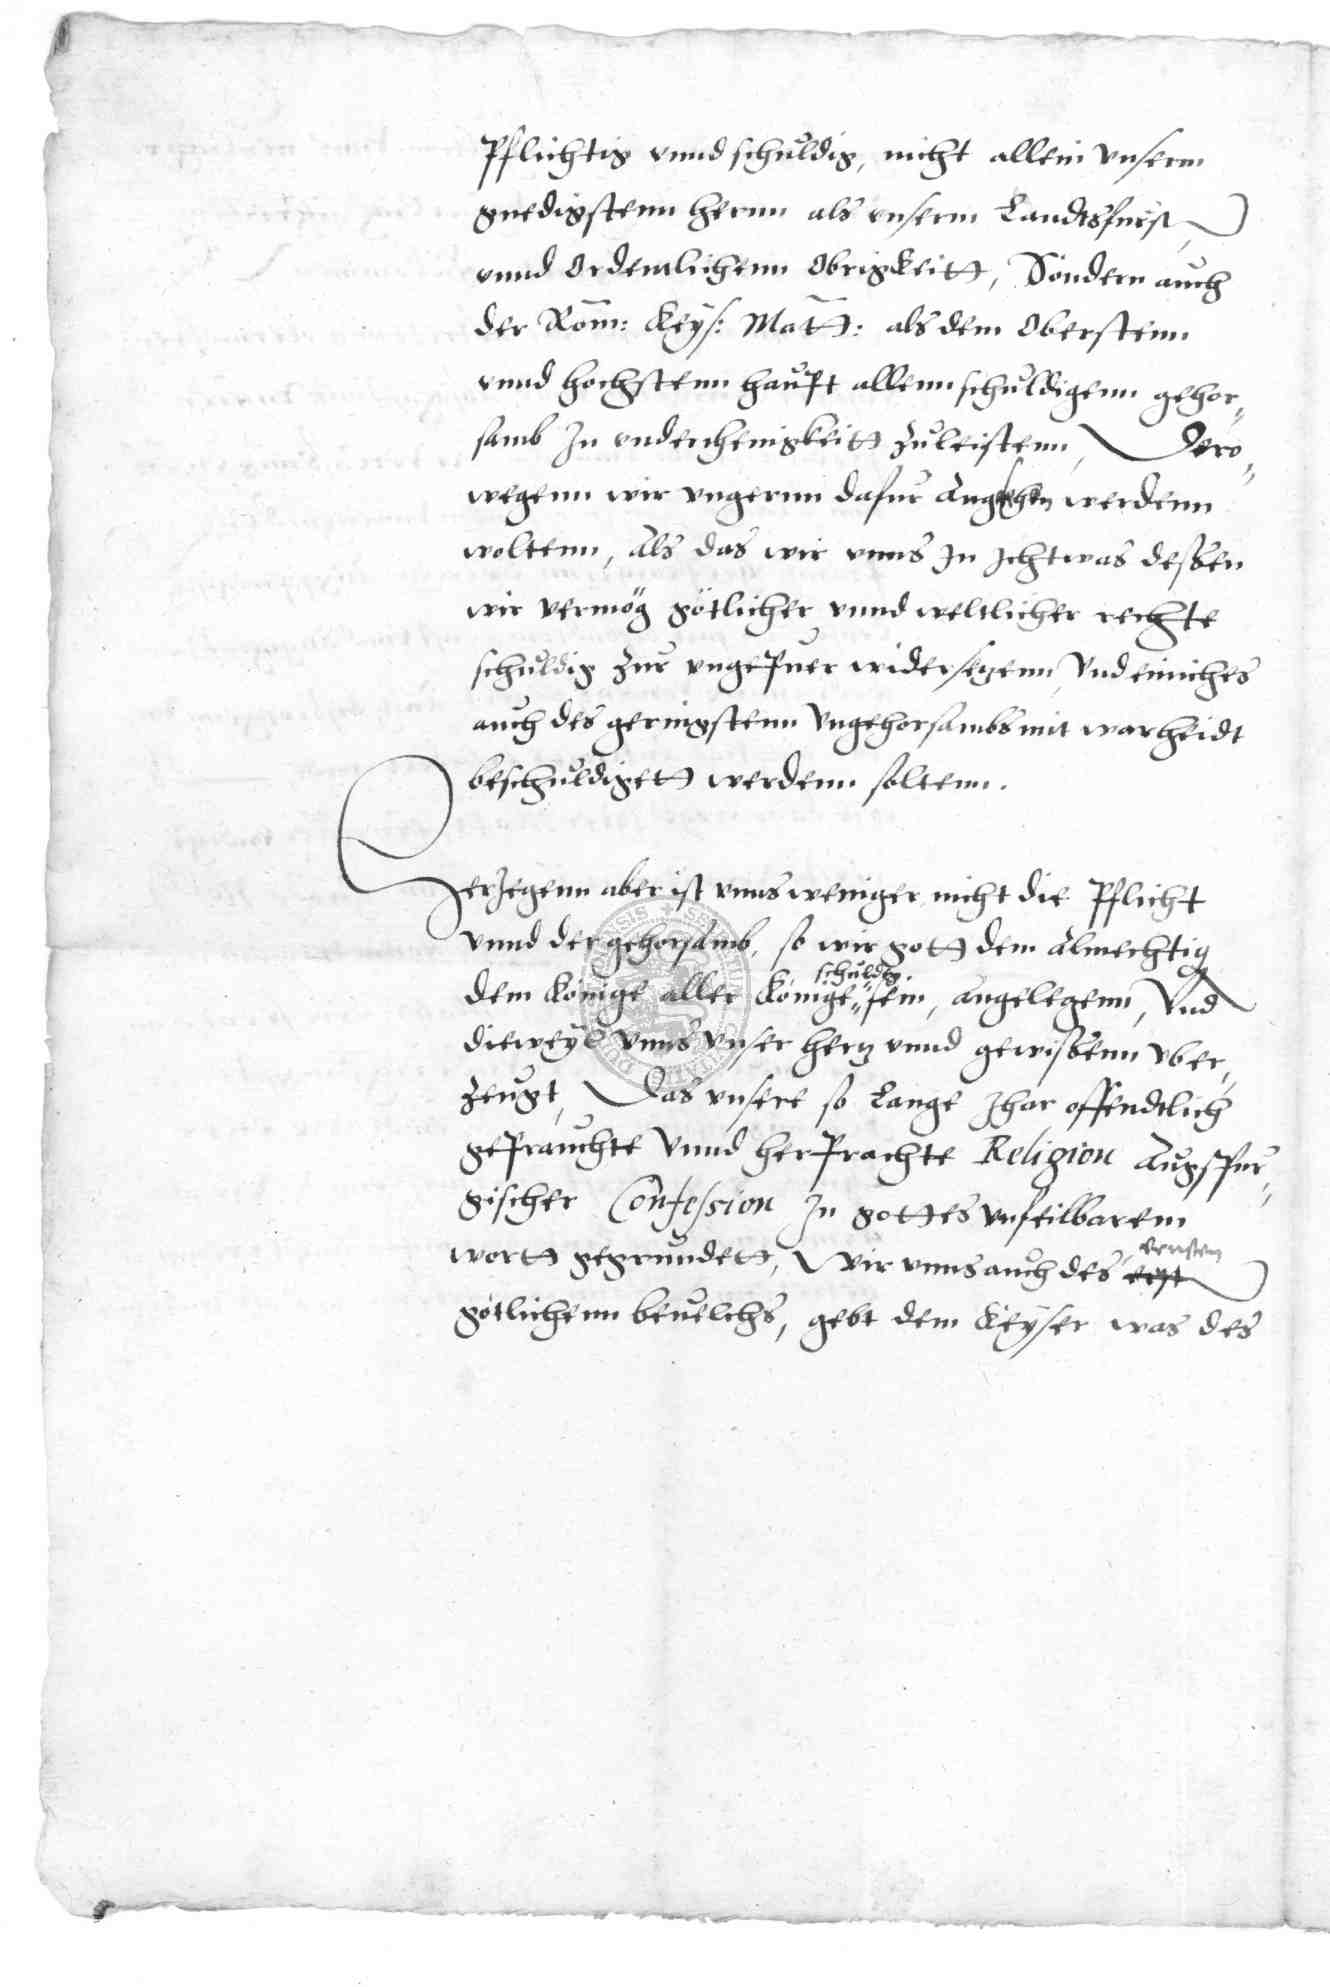 Pflichtig vnnd schuldig, nicht allein vnserm
gnedigstenn hernn als vnserm Landtsfürst,
vnnd Ordenntlichenn Obrigkeitt, Sondern auch
der Röm: Keÿs: Matt: als dem Oberstenn
vnnd hochstenn haupt allenn schuldigenn gehor„
samb In vnderthenigkeitt zuleistenn, Dero„
wegenn wir vngernn dafur Angesehen werdenn
woltenn, Als das wir vnns In Ichtwas dessen
wir vermög götlicher vnnd weltlicher rechte
schuldig zur vngepuer widersetzenn, Vnd einiches
auch des geringstenn Vngehorsambs mit warheidt
beschuldigett werdenn soltenn.
Herjegenn aber ist vnns weniger nicht die Pflicht
vnnd der gehorsamb, so wir gott dem Almechtig
schuldig.
dem Könige aller Könige„ sein, Angelegenn, Vnd
dieweÿl vnns vnser hertz vnnd gewissenn vber„
zeugt, Das vnsere so Lange Ihar offendtlich
geprauchte Vnnd herprachte Religion Augspur„
gischer Confession In gottes vnfeilbarem
ernsten
wortt gegrundett, Wir vnns auch des
götlichenn beuelchs, gebt dem Keÿser was des